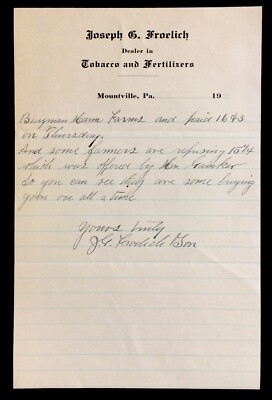 Joseph G. Froelich
Dealer in
Tobacco and Fertilizers
Mountville, Pa. 19
Farms and paid 16 & 3
on Thursday.
And some farmers are refusing 15 1/4
which was offered by Mr.
so you can see there are some buying
goin on all a time
Yours truly
J.G. Froelich & Son